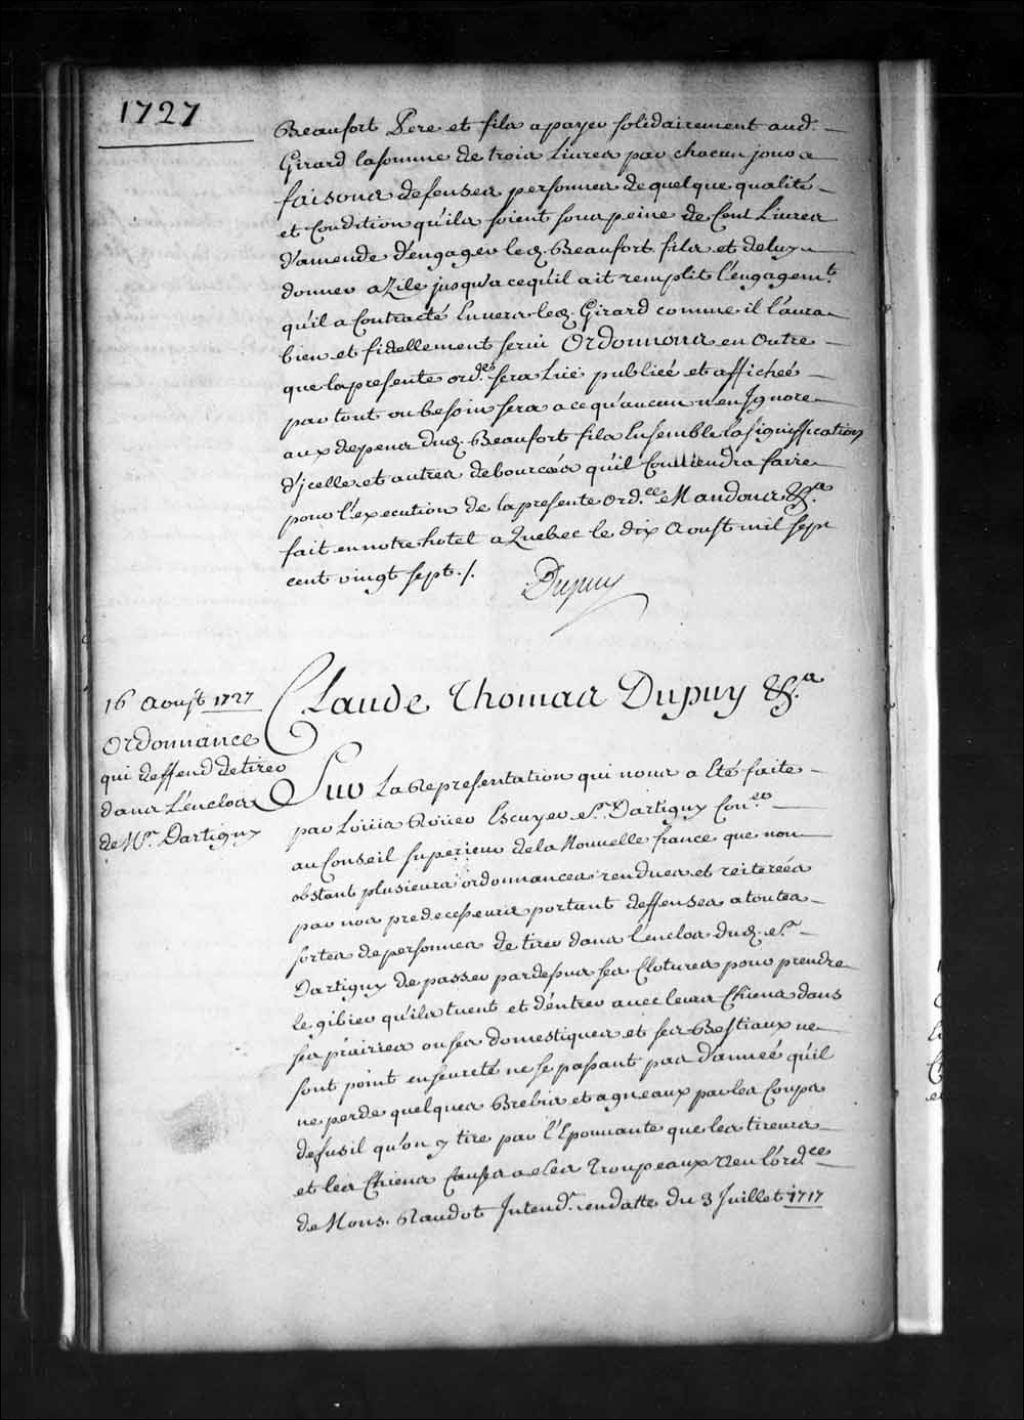 1727
Beaufort Pere et fils a payer solidairement aud.
Girard la somme de trois Livres par chacun jour
faisons defenses personnes de quelque qualité
et Condition qu'ils soient sous peine de Cent Livres
d'amende d'engager led. Beaufort fils et de luy
donner azile jusqu'a ce qu'il ait remplit l'engagemt.
qu'il a Contracté Envers led. Girard comme il l'aura
bien et fidellement servi Ordonnons en Outre
que la presente ordce. sera Lüe publiée et affichée
par tout ou besoin sera a ce qu'aucun n'en Ignore
aux depens dud. Beaufort fils Ensemble la signiffication
d'jcelle et autres debourcés qu'il Conviendra faire
pour l'execution de la presente Ord.ce Mandons &.a
fait en notre hotel a Quebec le dix Aoust mil sept
cent vingt sept ./.
Dupuy
16 Aoust 1727
Ordonnance
qui deffend de tirer
dans L'enclos
de Mr. Dartigny
Claude Thomas Dupuy &.a
Sur La Representation qui nous a Eté faite
par Loüis Roüer Escuyer Sr. Dartigny Con.er
au Conseil superieur de la Nouvelle france que non
obstant plusieurs ordonnances rendues et reiterées
par nos predecesseurs portant deffenses a toutes
sortes de personnes de tirer dans l'enclos dud. Sr.
Dartigny de passer pardessus ses Clotures pour prendre
le gibier qu'ils tuent et d'entrer avec leurs Chiens dans
ses prairies ou ses domestiques et ses Bestiaux ne
sont point en seureté ne se passant pas d'année qu'il
ne perde quelques Brebis et agneaux par les Coups
de fusil qu'on y tire par l'Epouvante que les tireurs
et les Chiens Causent a ses Troupeaux Veu l'ord.ce
de Mons. Raudot Intend.t en datte du 3 Juillet 1717